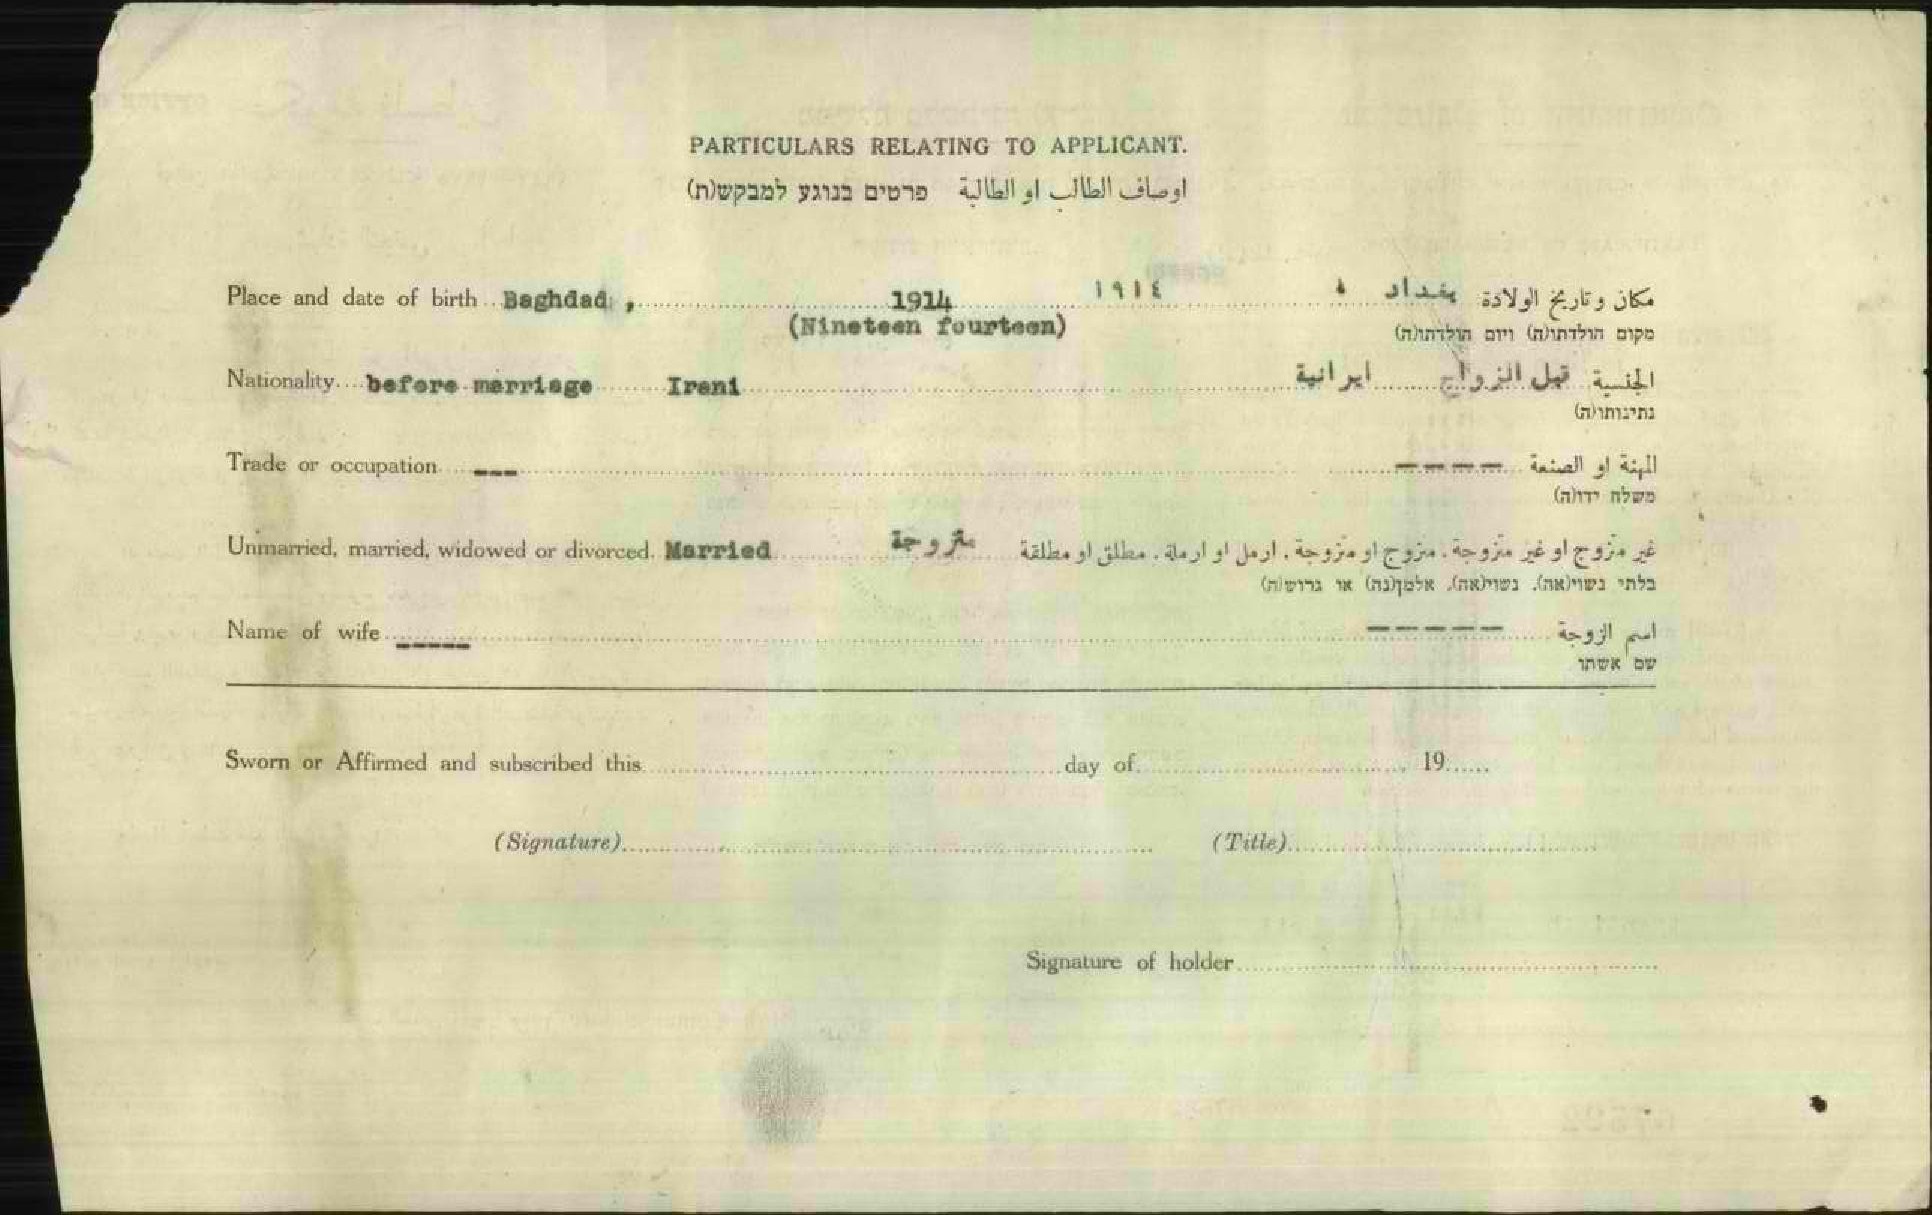 PARTICULARS RELATING TO APPLICANT.
اوصاف الطالب او الطالبة פרטים בנוגע למבקש(ת)
Place and date of birth Baghdad , 1914 ١٩١٤ ، بغداد مكان وتاريخ الولادة
(Nineteen fourteen) מקום הולדתו(ה) ויום הולדתו(ה)
Nationality before marriage Irani ايرانية قبل الزواج الجنسية
נתינותו(ה)
Trade or occupation --- ---- المهنة او الصنعة
משלח ידו(ה)
Unmarried, married, widowed or divorced. Married متزوجة غير متزوج او غير متزوجة، متزوج او متزوجة، ارمل او ارملة، مطلق او مطلقة
בלתי נשוי(אה), נשוי(אה), אלמן(נה) או גרוש(ה)
Name of wife ----- ----- اسم الزوجة
שם אשתו
Sworn or Affirmed and subscribed this day of 19
(Signature) (Title)
Signature of holder